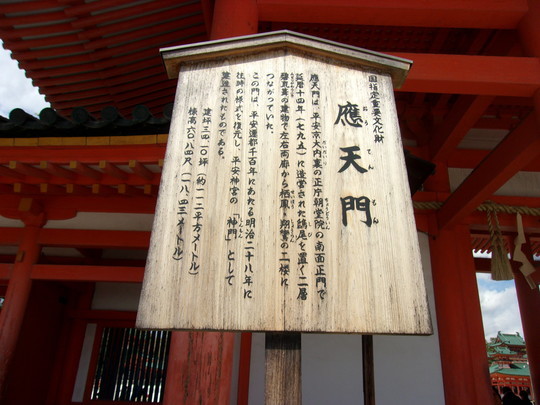 国指定重要文化財
應天門
おうてんもん
應天門は、平安京大内裏の正庁朝堂院の南面正門で
延暦十四年(七九五)に造営された鴟尾を置く二層
碧瓦葺の建物で左右両廊から栖鳳・翔鸞の二楼に
つながっていた。
この門は、平安遷都千百年にあたる明治二十八年に
往時の様式を復元し、平安神宮の「神門」として
建造されたものである。
建坪三四・〇坪(約一一二平方メートル)
棟高六〇・八四尺(一八・四三メートル)